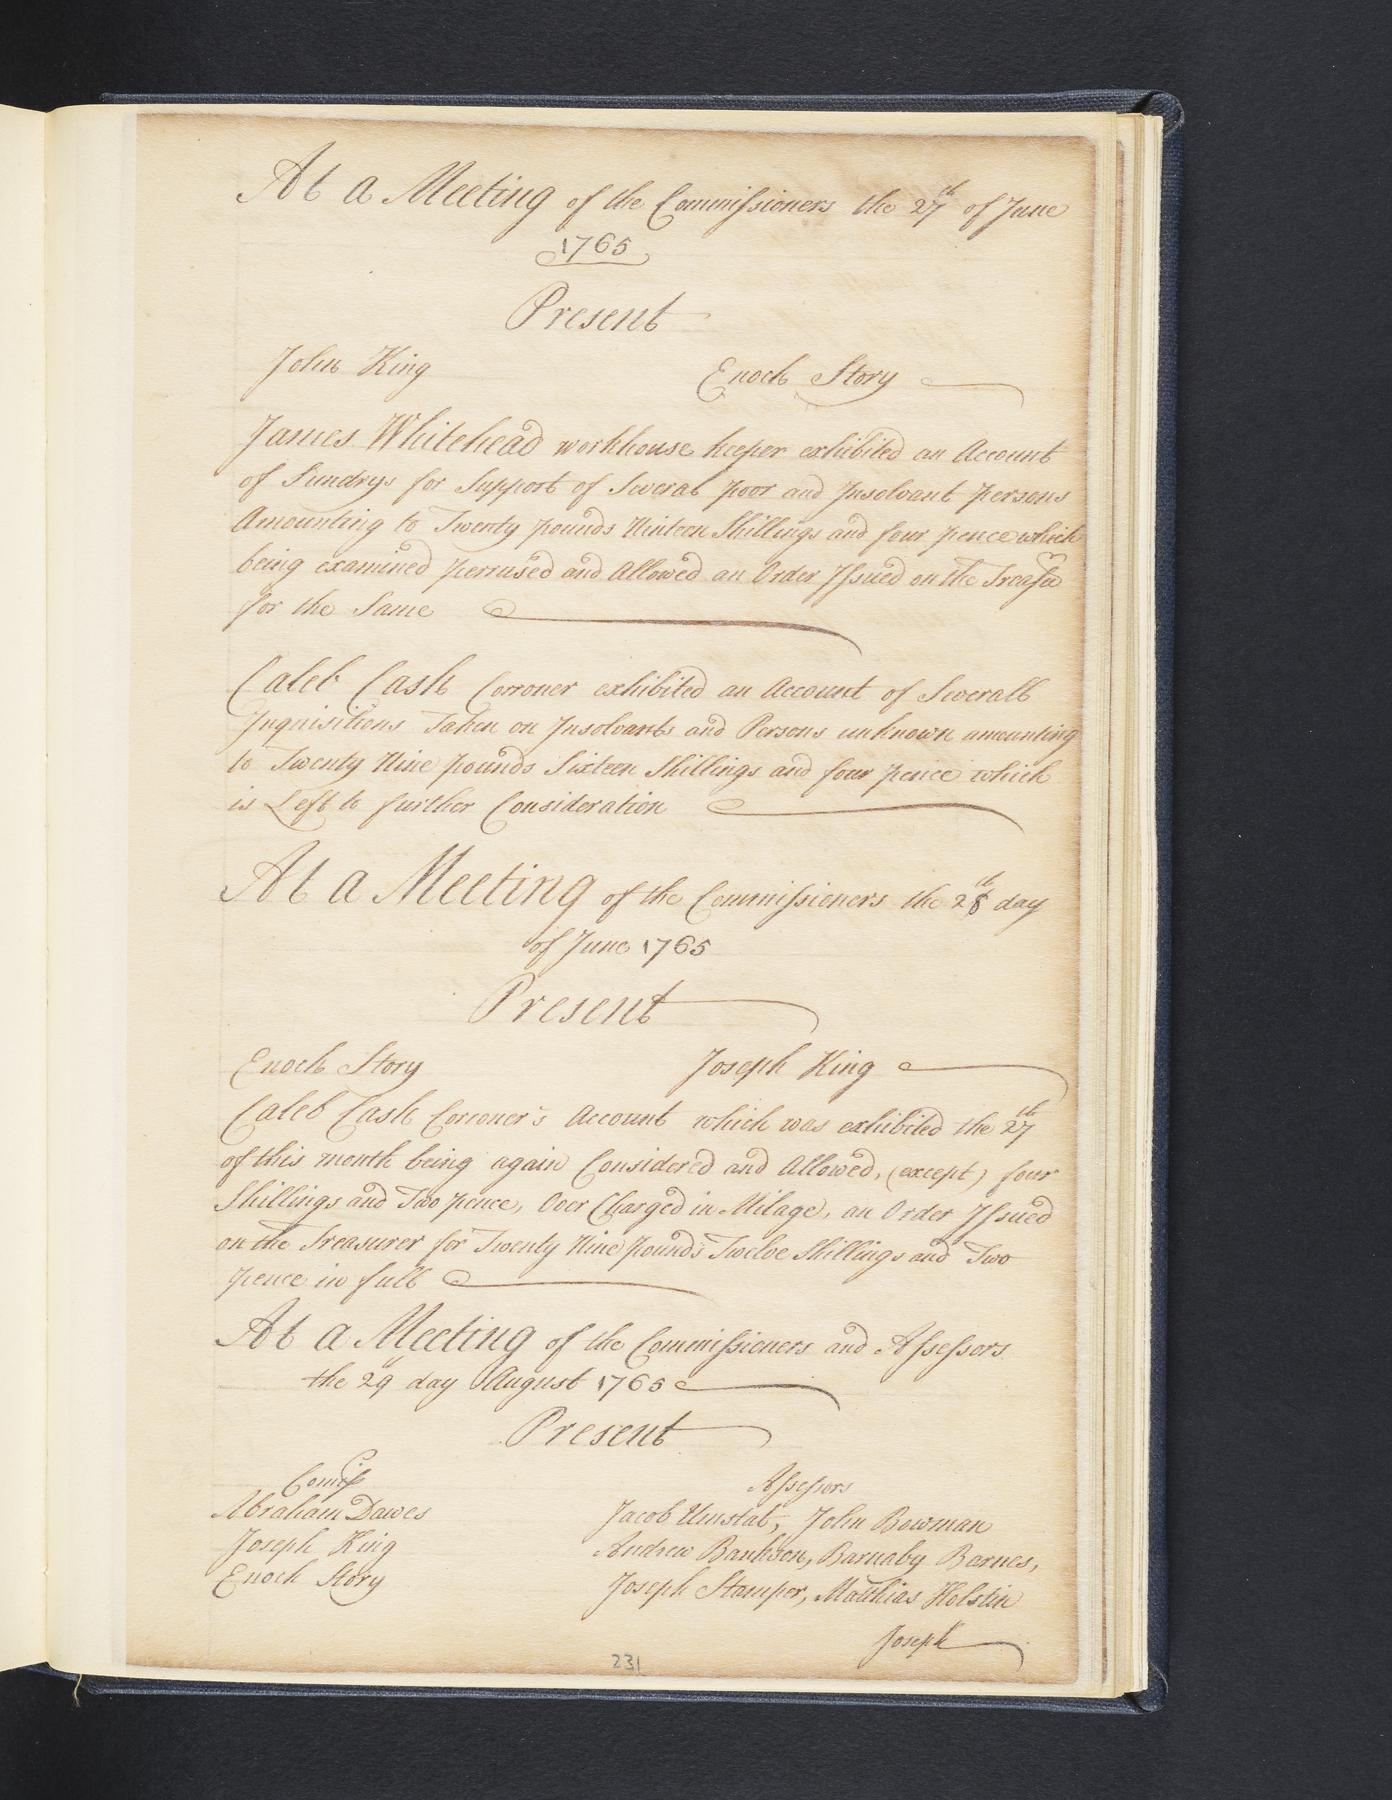 At a Meeting of the Commissioners the 27th of June
1765
Present
John King Enoch Story
James Whitehead workhouse keeper exhibited an Account
of Sundrys for Support of Several poor and Insolvant persons
Amounting to Twenty pounds Ninteen Shillings and four pence which
being examined perrused and Allowed an Order Issued on the Treasr
for the Same
Caleb Cash Corroner exhibited an Account of Severall
Inquisitions Taken on Insolvants and Persons unknown amounting
to Twenty Nine pounds Sixteen Shillings and four pence which
is Left to further Consideration
At a Meeting of the Commissioners the 28th day
of June 1765
Present
Enoch Story Joseph King
Caleb Cash Corroner's Account which was exhibited the 27th
of this month being again Considered and Allowed, (except) four
Shillings and Two pence, Over Charged in Milage, an Order Issued
on the Treasurer for Twenty Nine pounds Twelve Shillings and Two
pence in full
At a Meeting of the Commissioners and Assessors
the 29 day August 1765
Present
Comis Assessors
Abraham Dawes Jacob Umstat, John Bowman
Joseph King Andrew Bankson, Barnaby Barnes,
Enoch Story Joseph Stamper, Matthias Holstin
Joseph
231